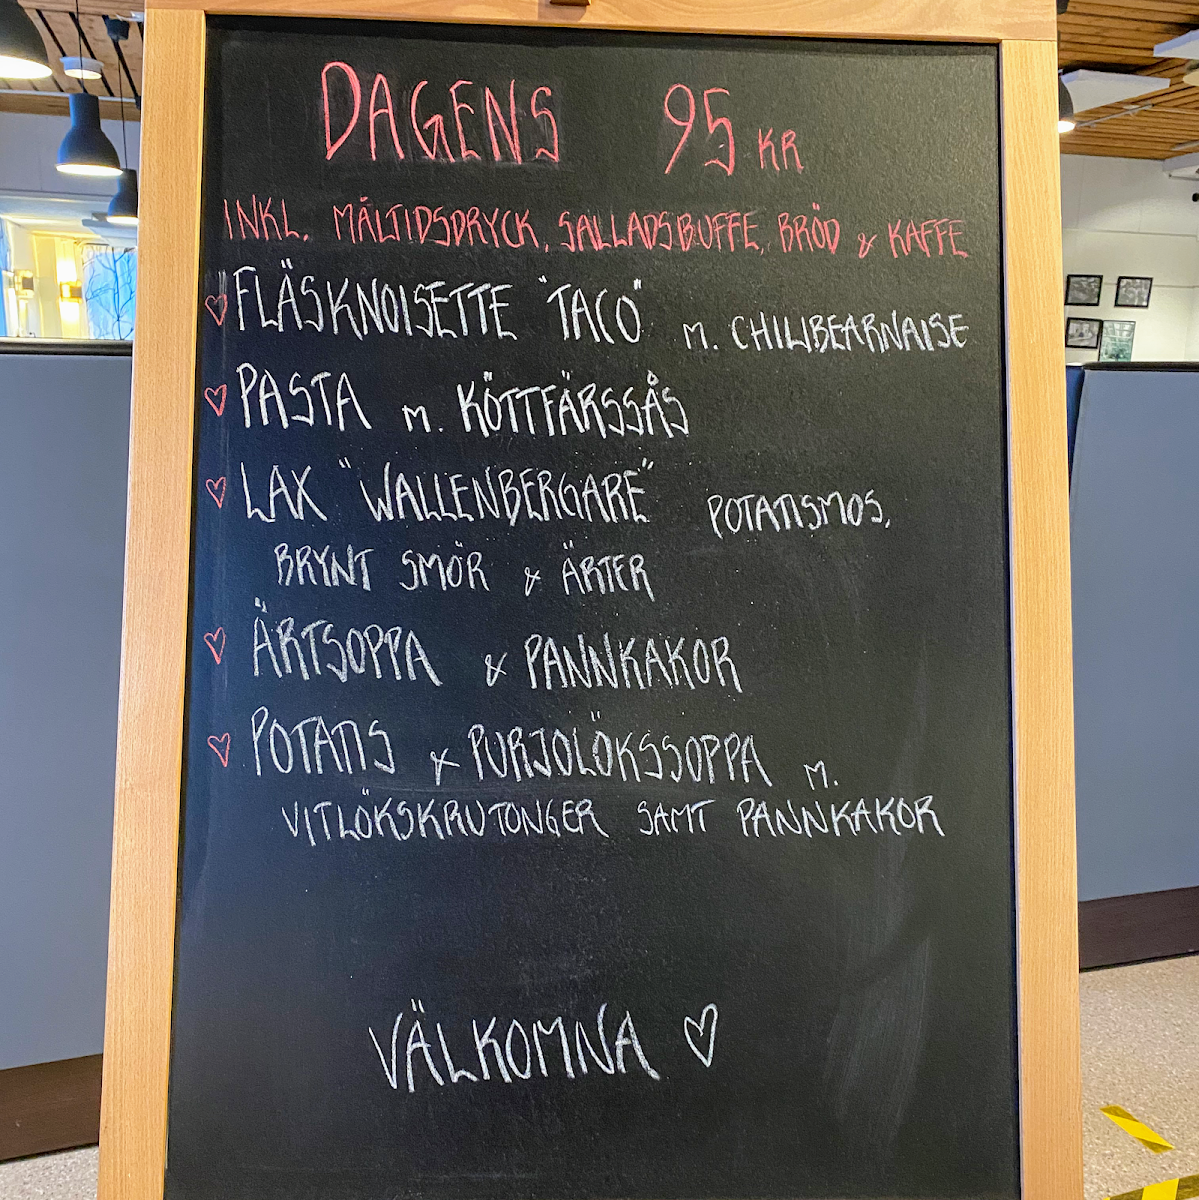 DAGENS 95 KR
INKL. MÅLTIDSDRYCK, SALLADSBUFFE, BRÖD & KAFFE
♡ FLÄSKNOISETTE "TACO" M. CHILIBEARNAISE
♡ PASTA M. KÖTTFÄRSSÅS
♡ LAX "WALLENBERGARE" POTATISMOS,
BRYNT SMÖR & ÄRTER
♡ ÄRTSOPPA & PANNKAKOR
♡ POTATIS & PURJOLÖKSSOPPA M.
VITLÖKSKRUTONGER SAMT PANNKAKOR
VÄLKOMNA ♡